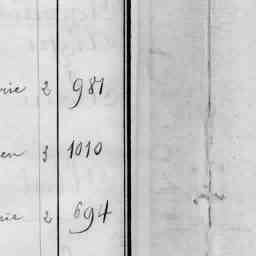 rie 2 981
en 3 1010
rie 2 694